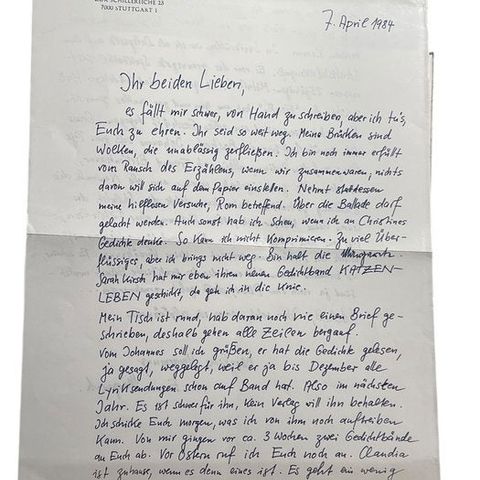 ZUR SCHILLEREICHE 23
7000 STUTTGART 1
7. April 1984
Ihr beiden Lieben,
es fällt mir schwer, von Hand zu schreiben, aber ich tu's,
Euch zu ehren. Ihr seid so weit weg. Meine Brücken sind
Wolken, die unablässig zerfließen. Ich bin noch immer erfüllt
vom Rausch des Erzählens, wenn wir zusammenwaren, nichts
davon will sich auf dem Papier einstellen. Nehmt stattdessen
meine hilflosen Versuche, Rom betreffend. Über die Ballade darf
gelacht werden. Auch sonst hab ich Scheu, wenn ich an Christines
Gedichte denke. So kann ich nicht komprimieren. Zu viel Über-
flüssiges, aber ich brings nicht weg. Bin halt die
Sarah Kirsch hat mir eben ihren neuen Gedichtband KATZEN-
LEBEN geschickt, da geh ich in die Knie.
Mein Tisch ist rund, hab daran noch nie einen Brief ge-
schrieben, deshalb gehen alle Zeilen bergauf.
Vom Johannes soll ich grüßen, er hat die Gedichte gelesen,
ja gesagt, weggelegt, weil er ja bis Dezember alle
Lyriksendungen schon auf Band hat. Also im nächsten
Jahr. Es ist schwer für ihn, kein Verlag will ihn behalten.
Ich schicke Euch morgen, was ich von ihm noch auftreiben
kann. Von mir gingen vor ca. 3 Wochen zwei Gedichtbände
an Euch ab. Vor Ostern ruf ich Euch noch an. Claudia
ist zuhause, wenn es denn eines ist. Es geht ein wenig